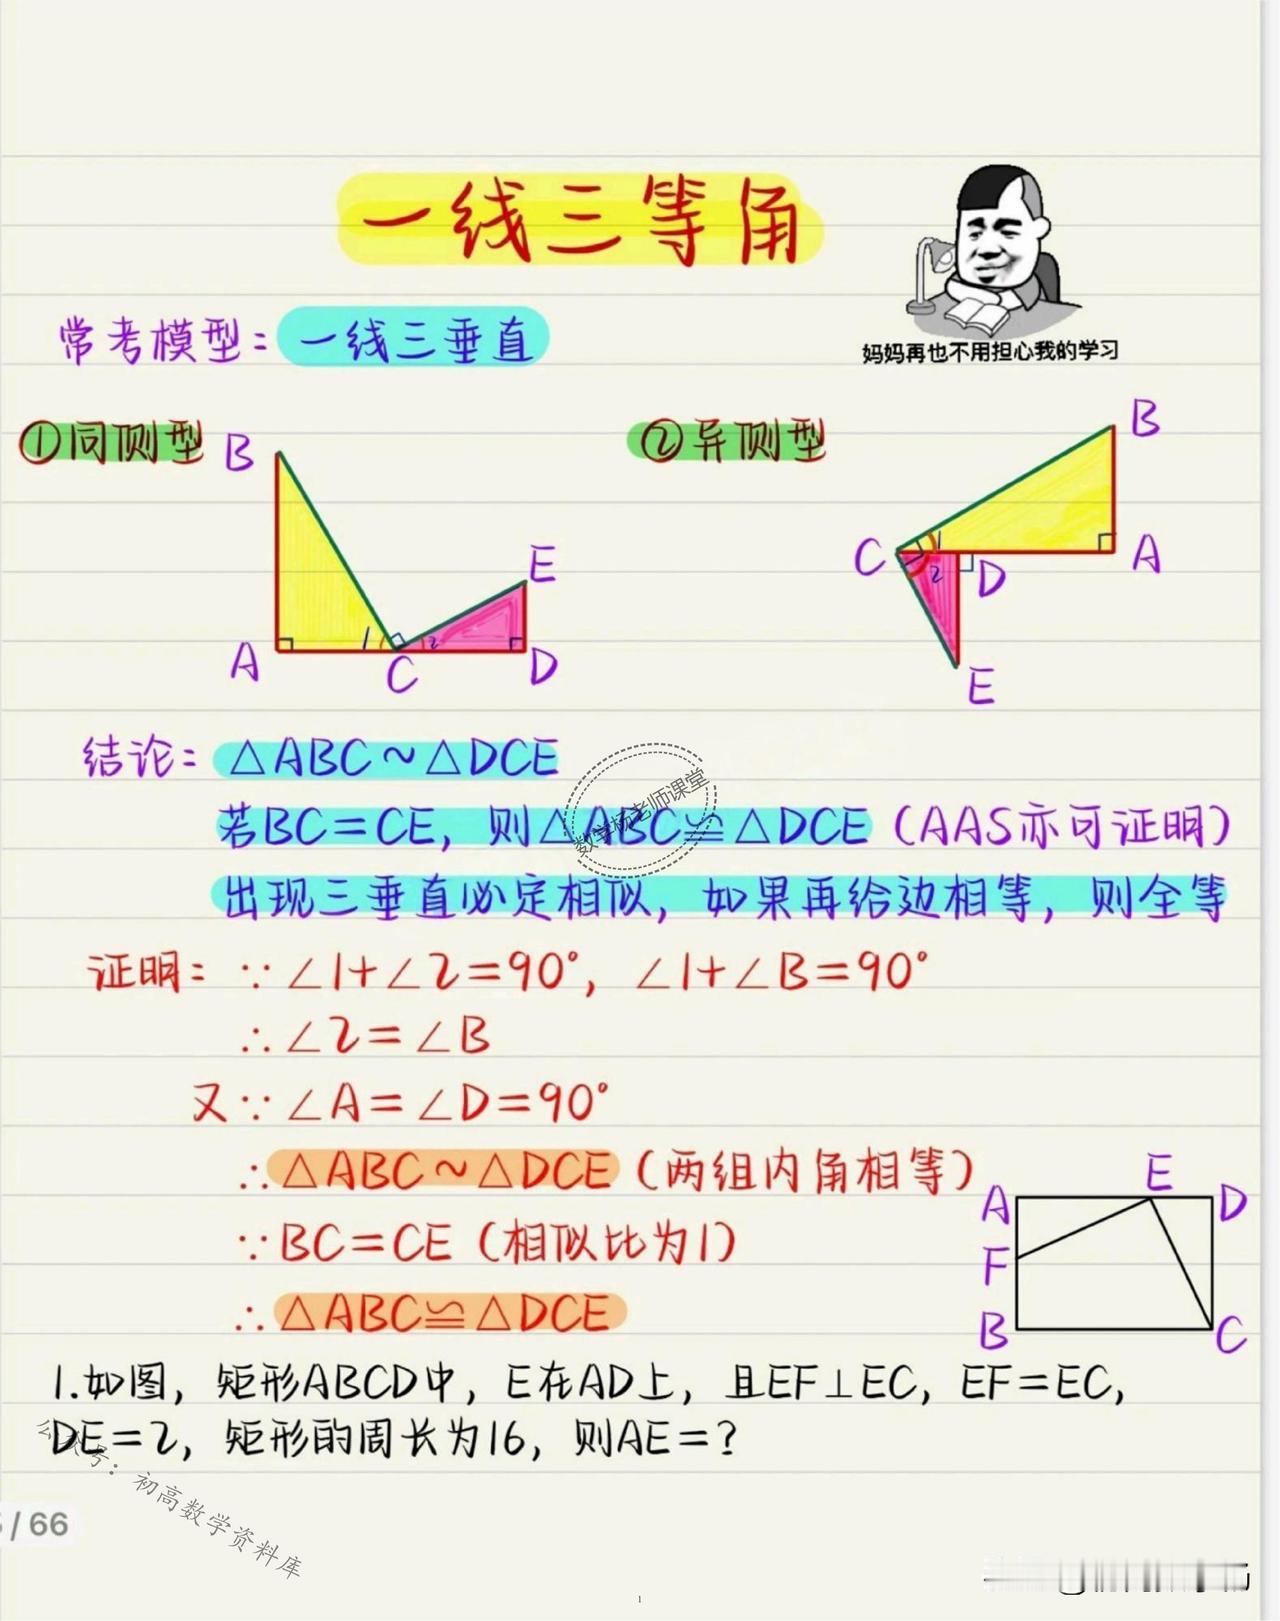 一线三等角
妈妈再也不用担心我的学习
常考模型：一线三垂直
①同侧型
②异侧型
B
E
A
C
D
1
2
B
C
A
D
E
1
2
结论：△ABC∽△DCE
若BC=CE，则△ABC≌△DCE（AAS亦可证明）
出现三垂直必定相似，如果再给边相等，则全等
数学杨老师课堂
证明：∵∠1+∠2=90°，∠1+∠B=90°
∴∠2=∠B
又∵∠A=∠D=90°
∴△ABC∽△DCE（两组内角相等）
∵BC=CE（相似比为1）
∴△ABC≌△DCE
A
E
D
F
B
C
1.如图，矩形ABCD中，E在AD上，且EF⊥EC，EF=EC，
DE=2，矩形的周长为16，则AE=?
公众号：初高数学资料库
/ 66
1